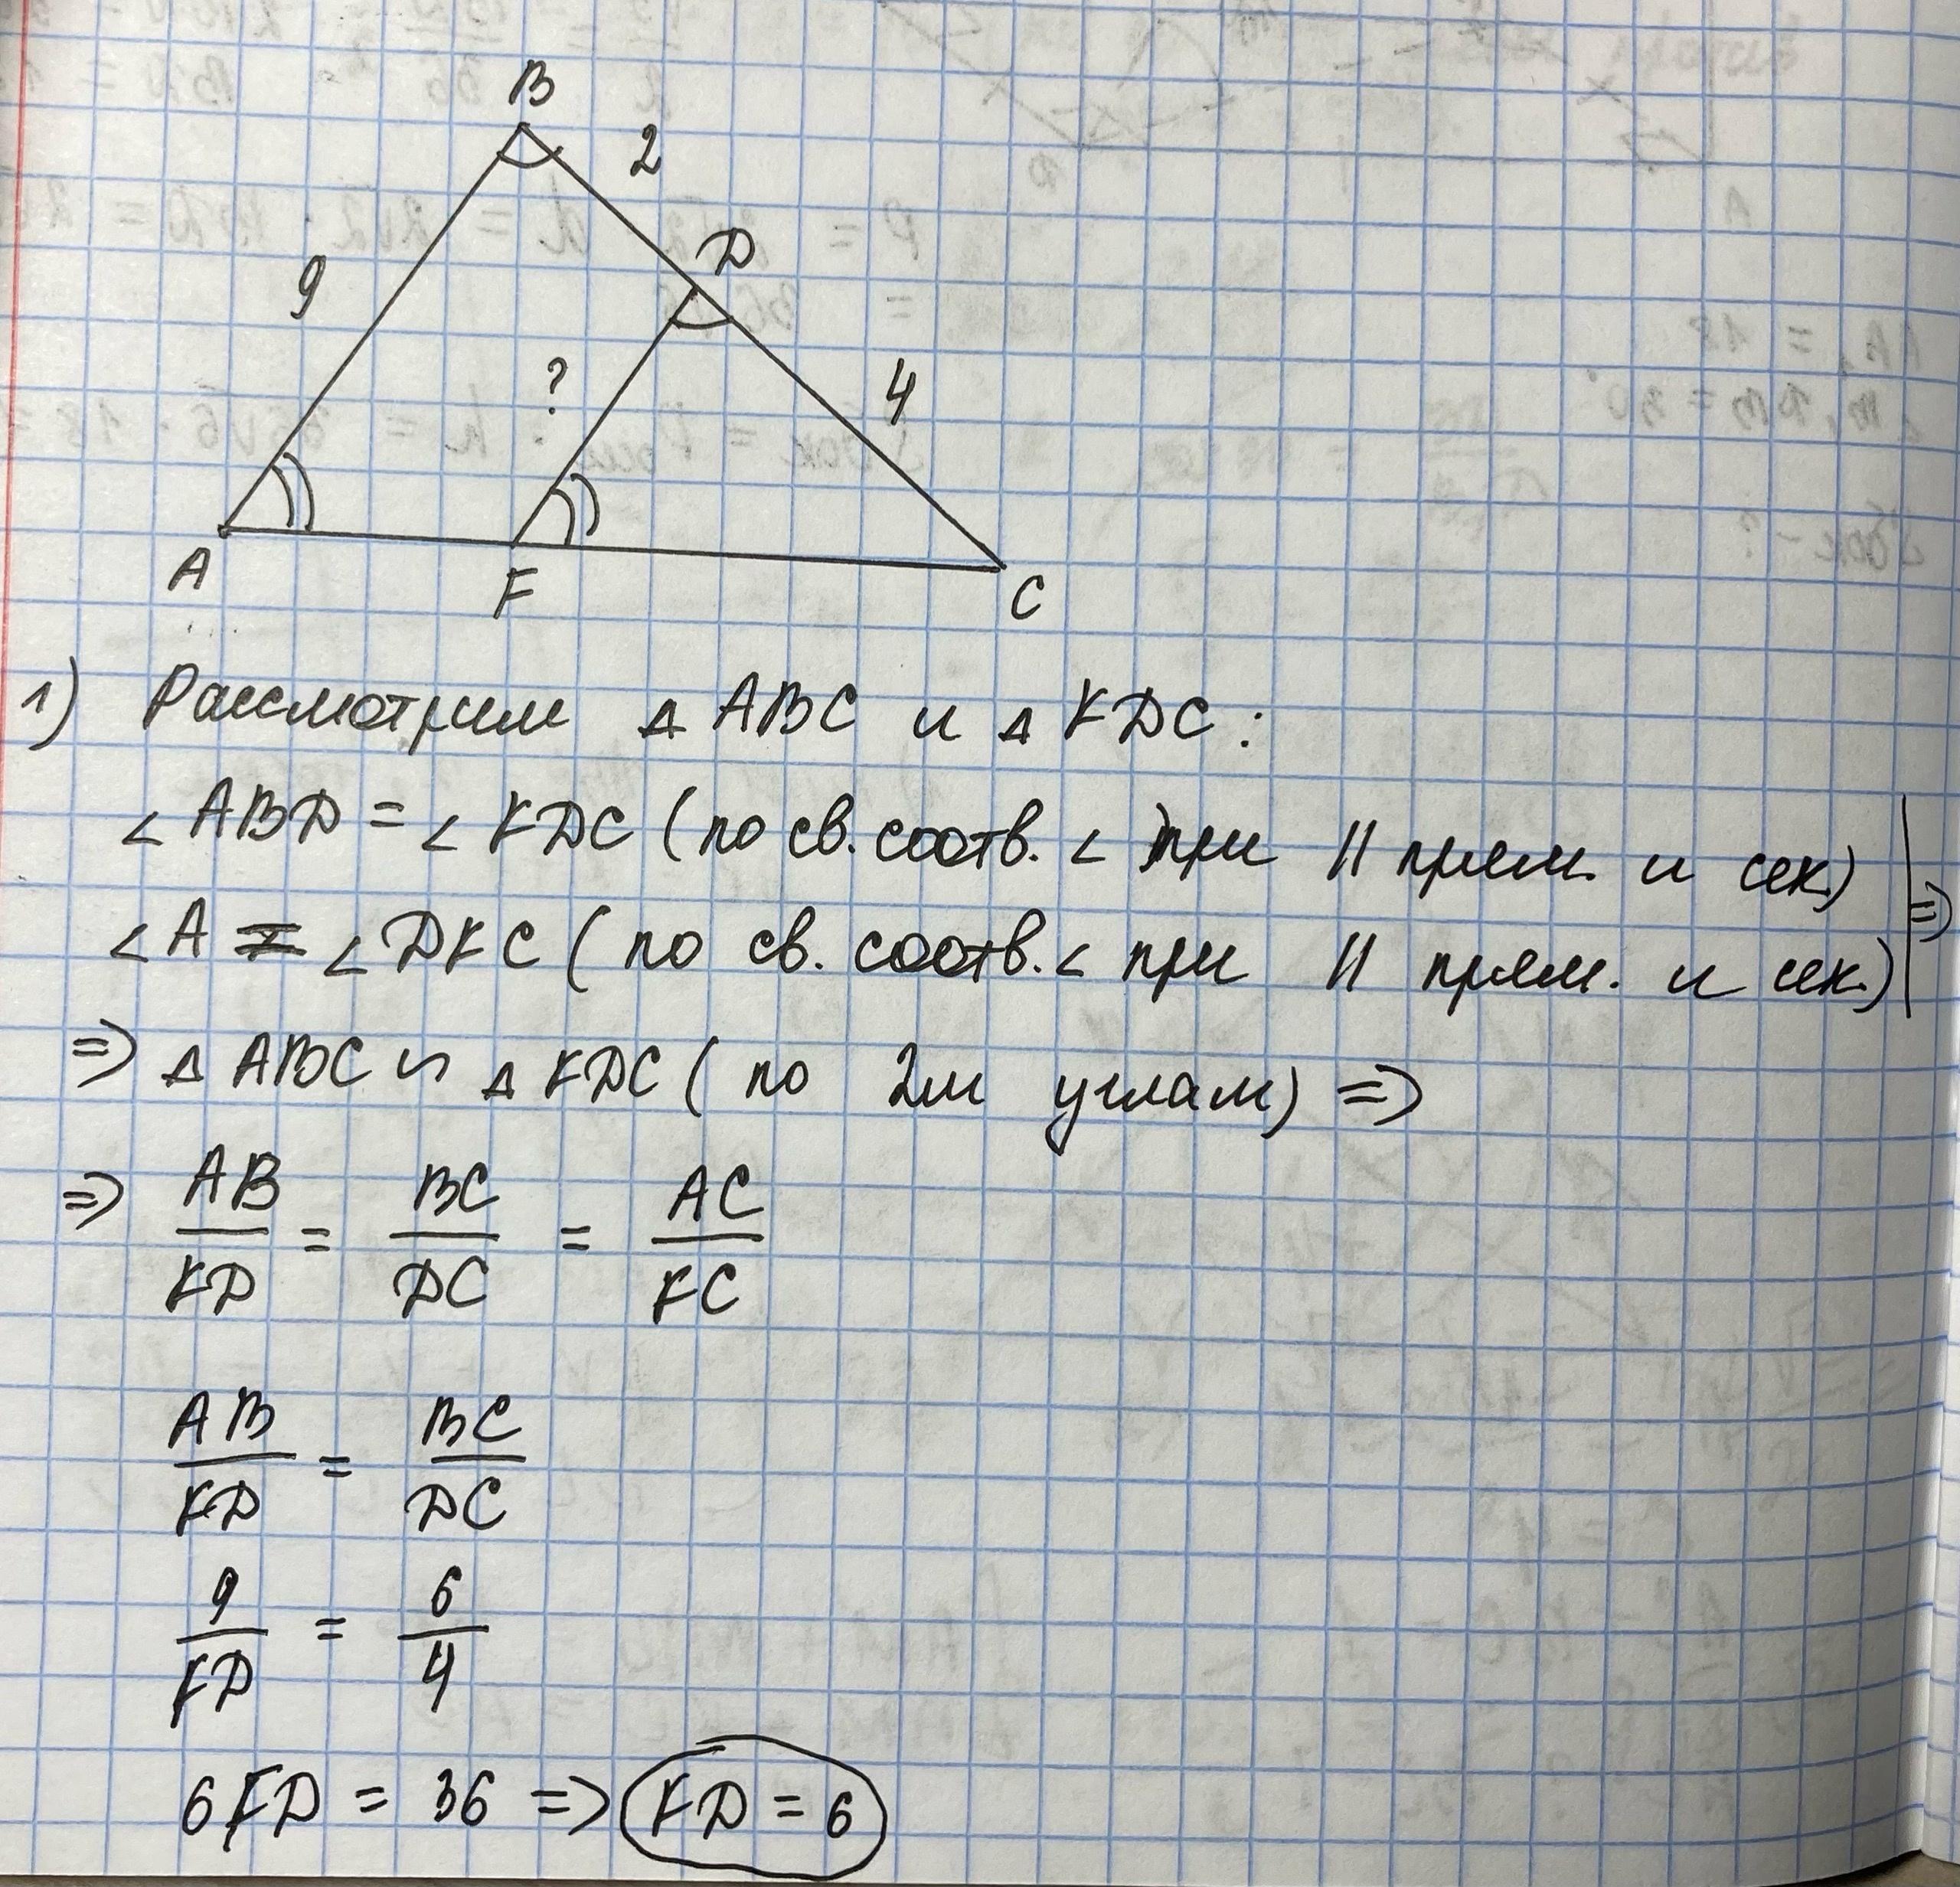 B
2
9
D
?
4
A
F
C
1) Рассмотрим △ ABC и △ FDC :
∠ ABD = ∠ FDC ( по св. соотв. ∠ при || прям. и сек.)
∠ A = ∠ DFC ( по св. соотв. ∠ при || прям. и сек.) | =>
=> △ ABC ∽ △ FDC ( по 2м углам) =>
=> AB/FD = BC/DC = AC/FC
AB/FD = BC/DC
9/FD = 6/4
6FD = 36 => FD = 6